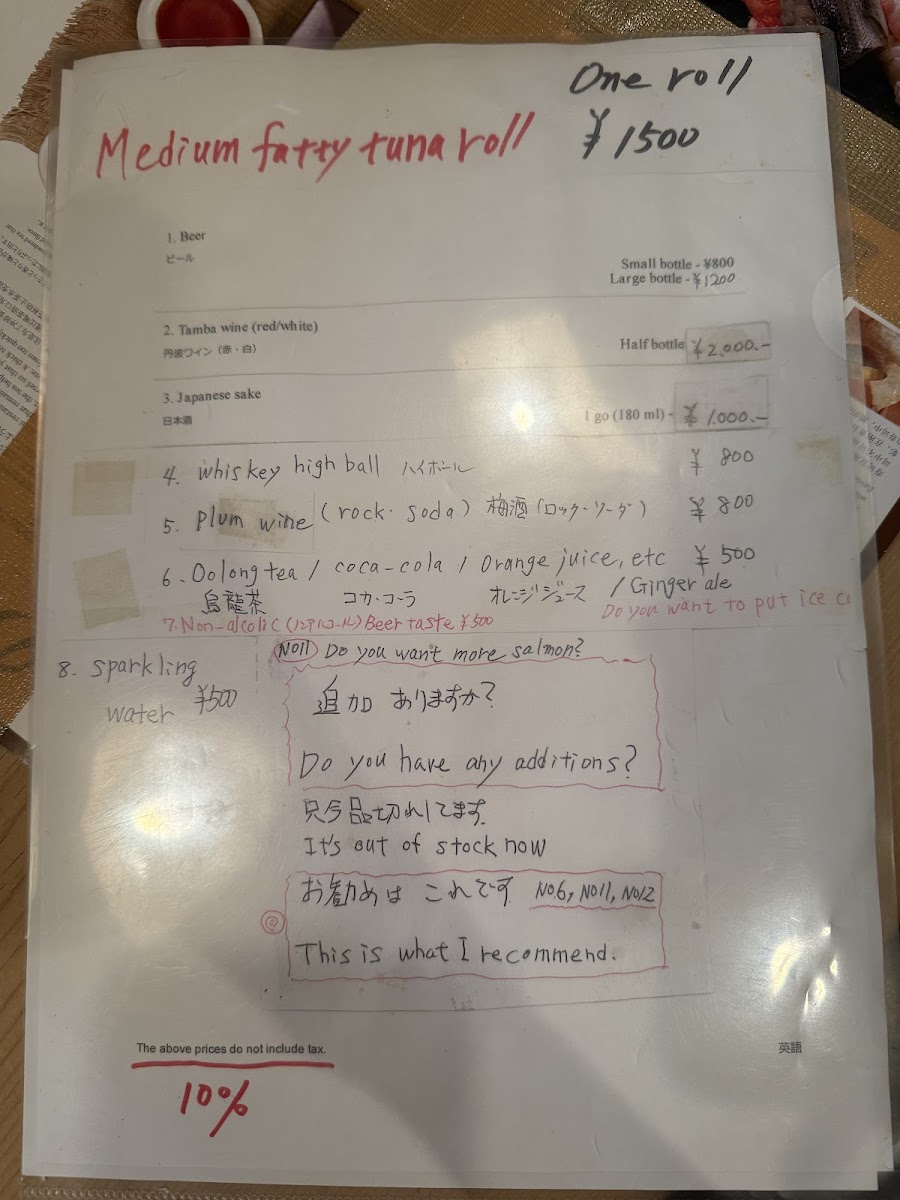 One roll
Medium fatty tuna roll ¥1500
1. Beer
ビール
Small bottle - ¥800
Large bottle - ¥1200
2. Tamba wine (red/white)
丹波ワイン（赤・白）
Half bottle ¥2,000.-
3. Japanese sake
日本酒
1 go (180 ml) - ¥1,000.-
4. whiskey high ball ハイボール ¥800
5. Plum wine (rock・soda) 梅酒(ロック・ソーダ) ¥800
6. Oolong tea / coca-cola / Orange juice, etc ¥500
烏龍茶 コカ・コーラ オレンジジュース / Ginger ale
7. Non-alcolic (ノンアルコール) Beer taste ¥500
Do you want to put ice
8. Sparkling
water ¥500
NO11 Do you want more salmon?
追加 ありますか？
Do you have any additions?
只今品切れしてます。
It's out of stock now
お勧めは これです NO.6, NO11, NO12
This is what I recommend.
The above prices do not include tax.
10%
英語